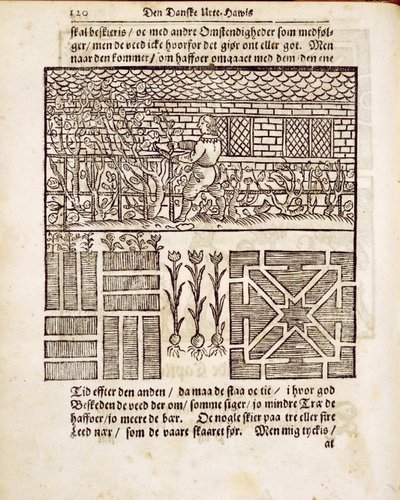 120 Den Danske Urte-Hawis
skal beskieris / oc med andre Omstendigheder som medføl-
ger / men de veed icke hvorfor det giør ont eller got. Men
naar den kommer / om haffver omgaaet med dem / den ene
Tid effter den anden / da maa de staa oc tie / i hvor god
Beskeden de veed der om / somme siger / jo mindre Træ de
haffver / jo meere de bær. Oc nogle skier paa tre eller fire
Leed nær / som de vaare skaaret før. Men mig tyckis /
at